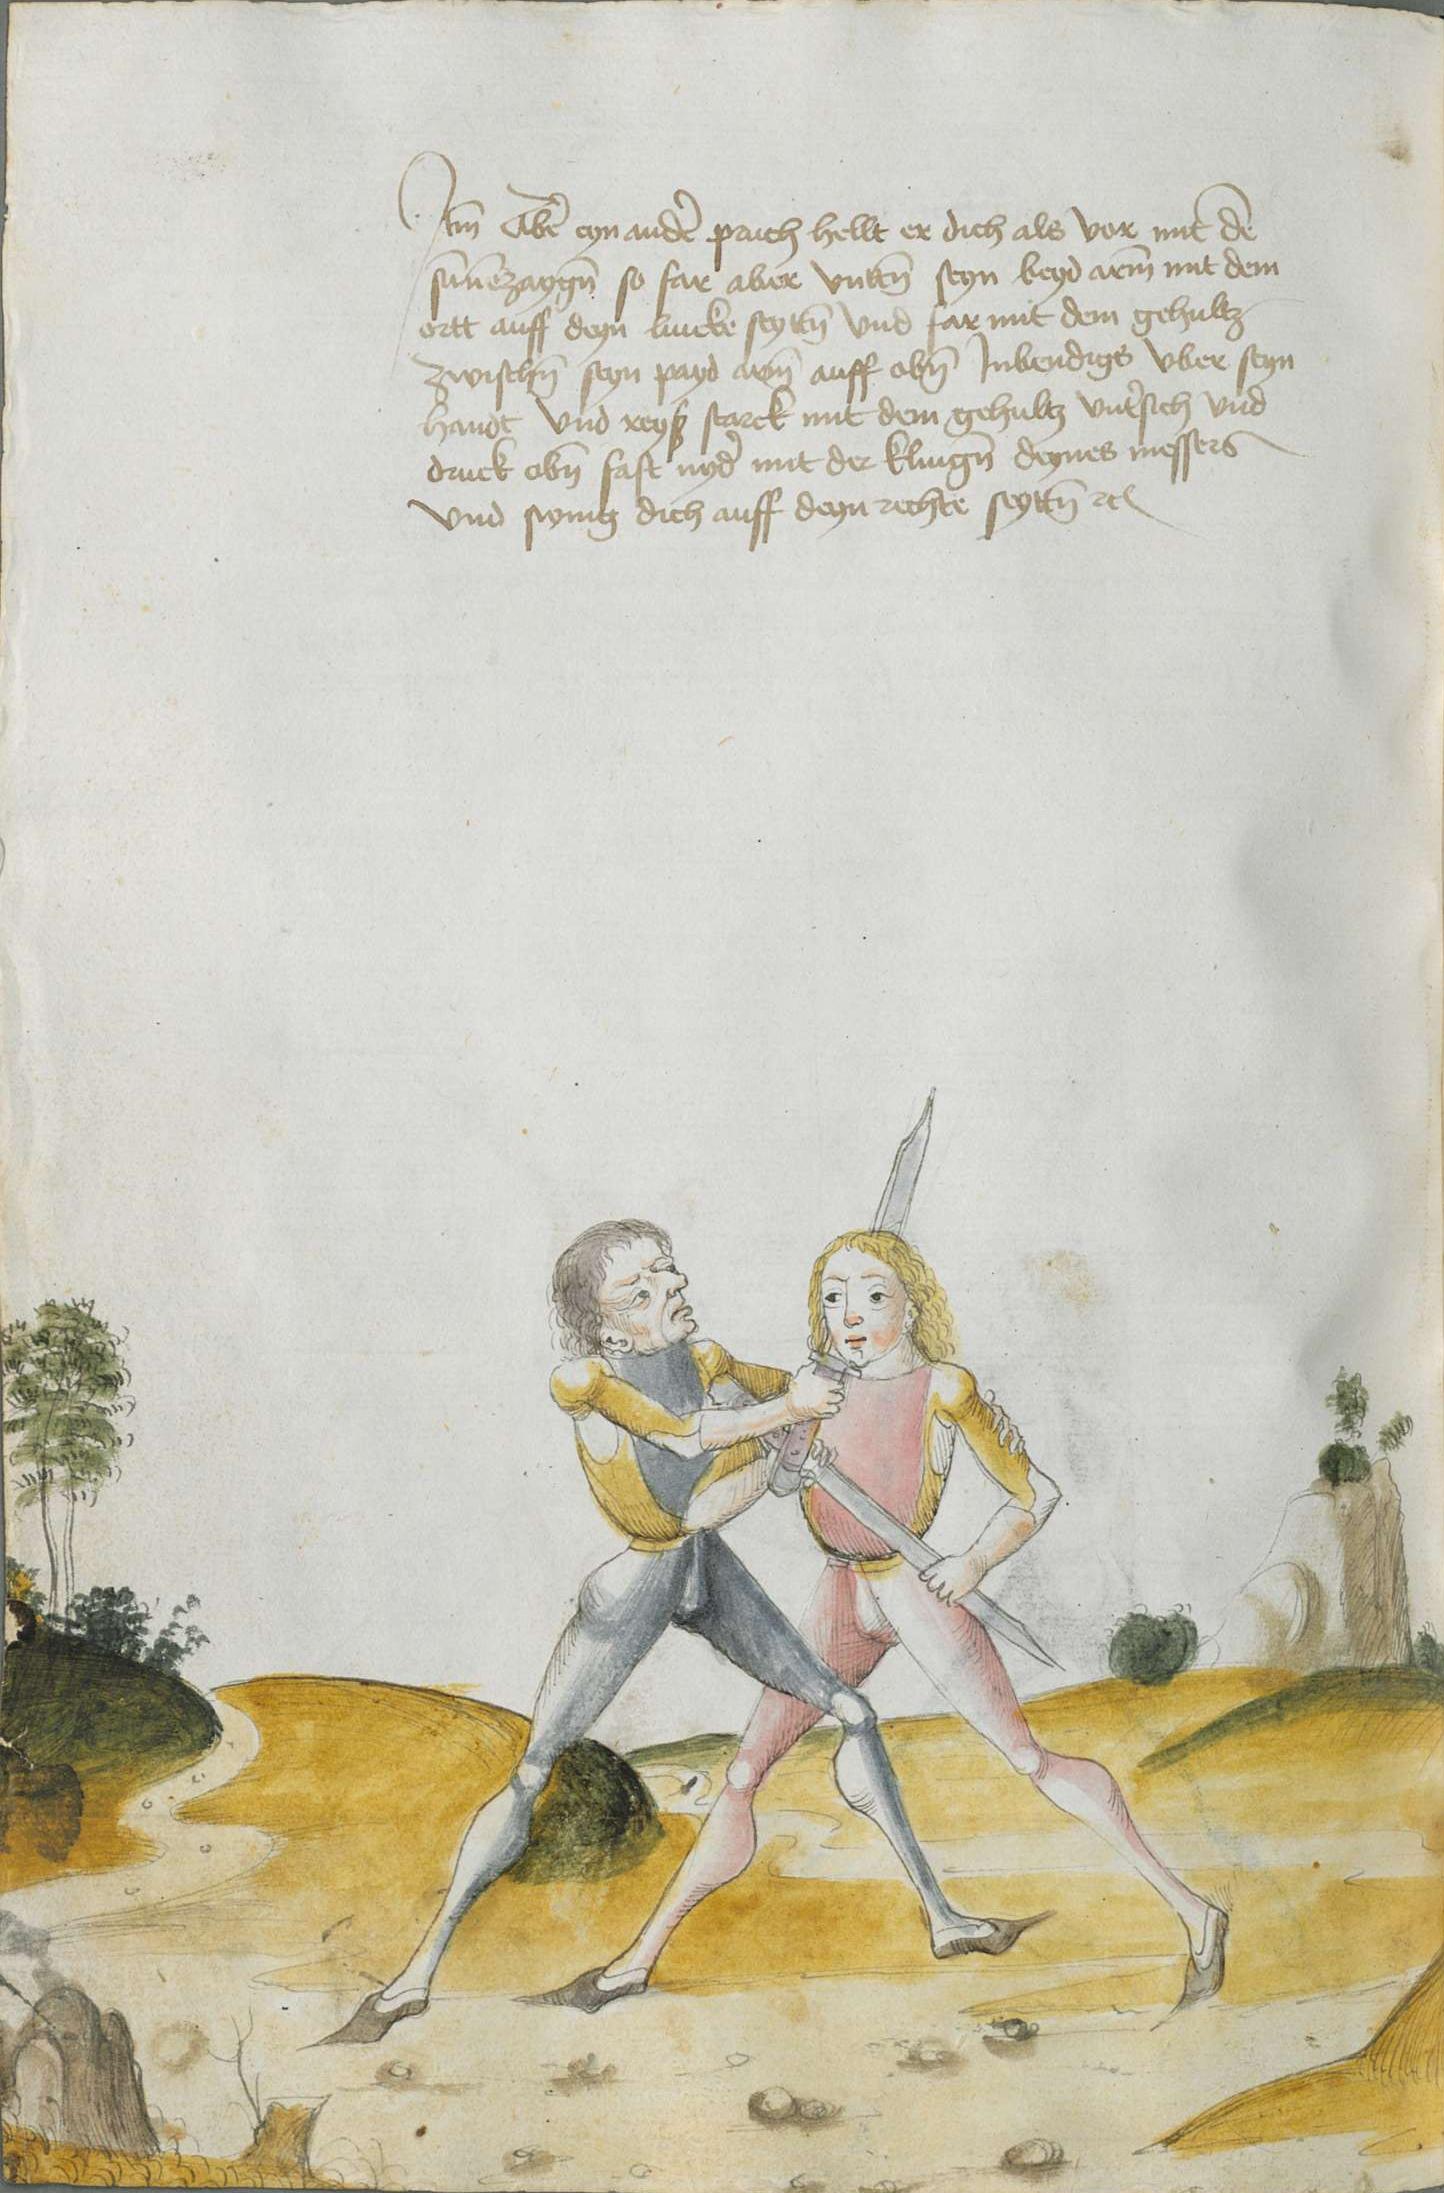 Itm̄ Aber̄ eyn ander̄ pruch hellt er dich als vor mit de̅
sūne̅zaygn̄ so far aber vnttn̄ seyn beyd arm̄ mit dem
ortt auff deyn lincke seyttn̄ vnd far mit dem gehultz
zwischn̄ seyn payd arm̄ auff obn̄ Inbendigs vber seyn
handt vnd reyß starck mit dem gehultz vnt̄sich vnd
druck obn̄ fast nyder̄ mit der klingn̄ deynes messers
vnd swing dich auff deyn rechte seyttn̄ ⁊c